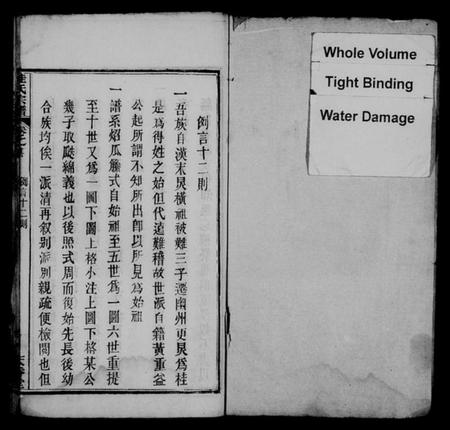 例言十二則
一吾族自漢末炅橫祖被難三子遷幽州更炅爲桂
是爲得姓之始但代遠難稽故世派自籍黃重益
公起所謂不知所出卽以所見爲始祖
一譜系照瓜藤式自始祖至五世爲一圖六世重提
至十世又爲一圖下圖上格小注上圖下格某公
幾子取瓞綿義也以後照式周而復始先長後幼
合族均俟一派清再叙别派别親疏便檢閱也但
氏宗譜 卷之首 例言十二則
Whole Volume
Tight Binding
Water Damage